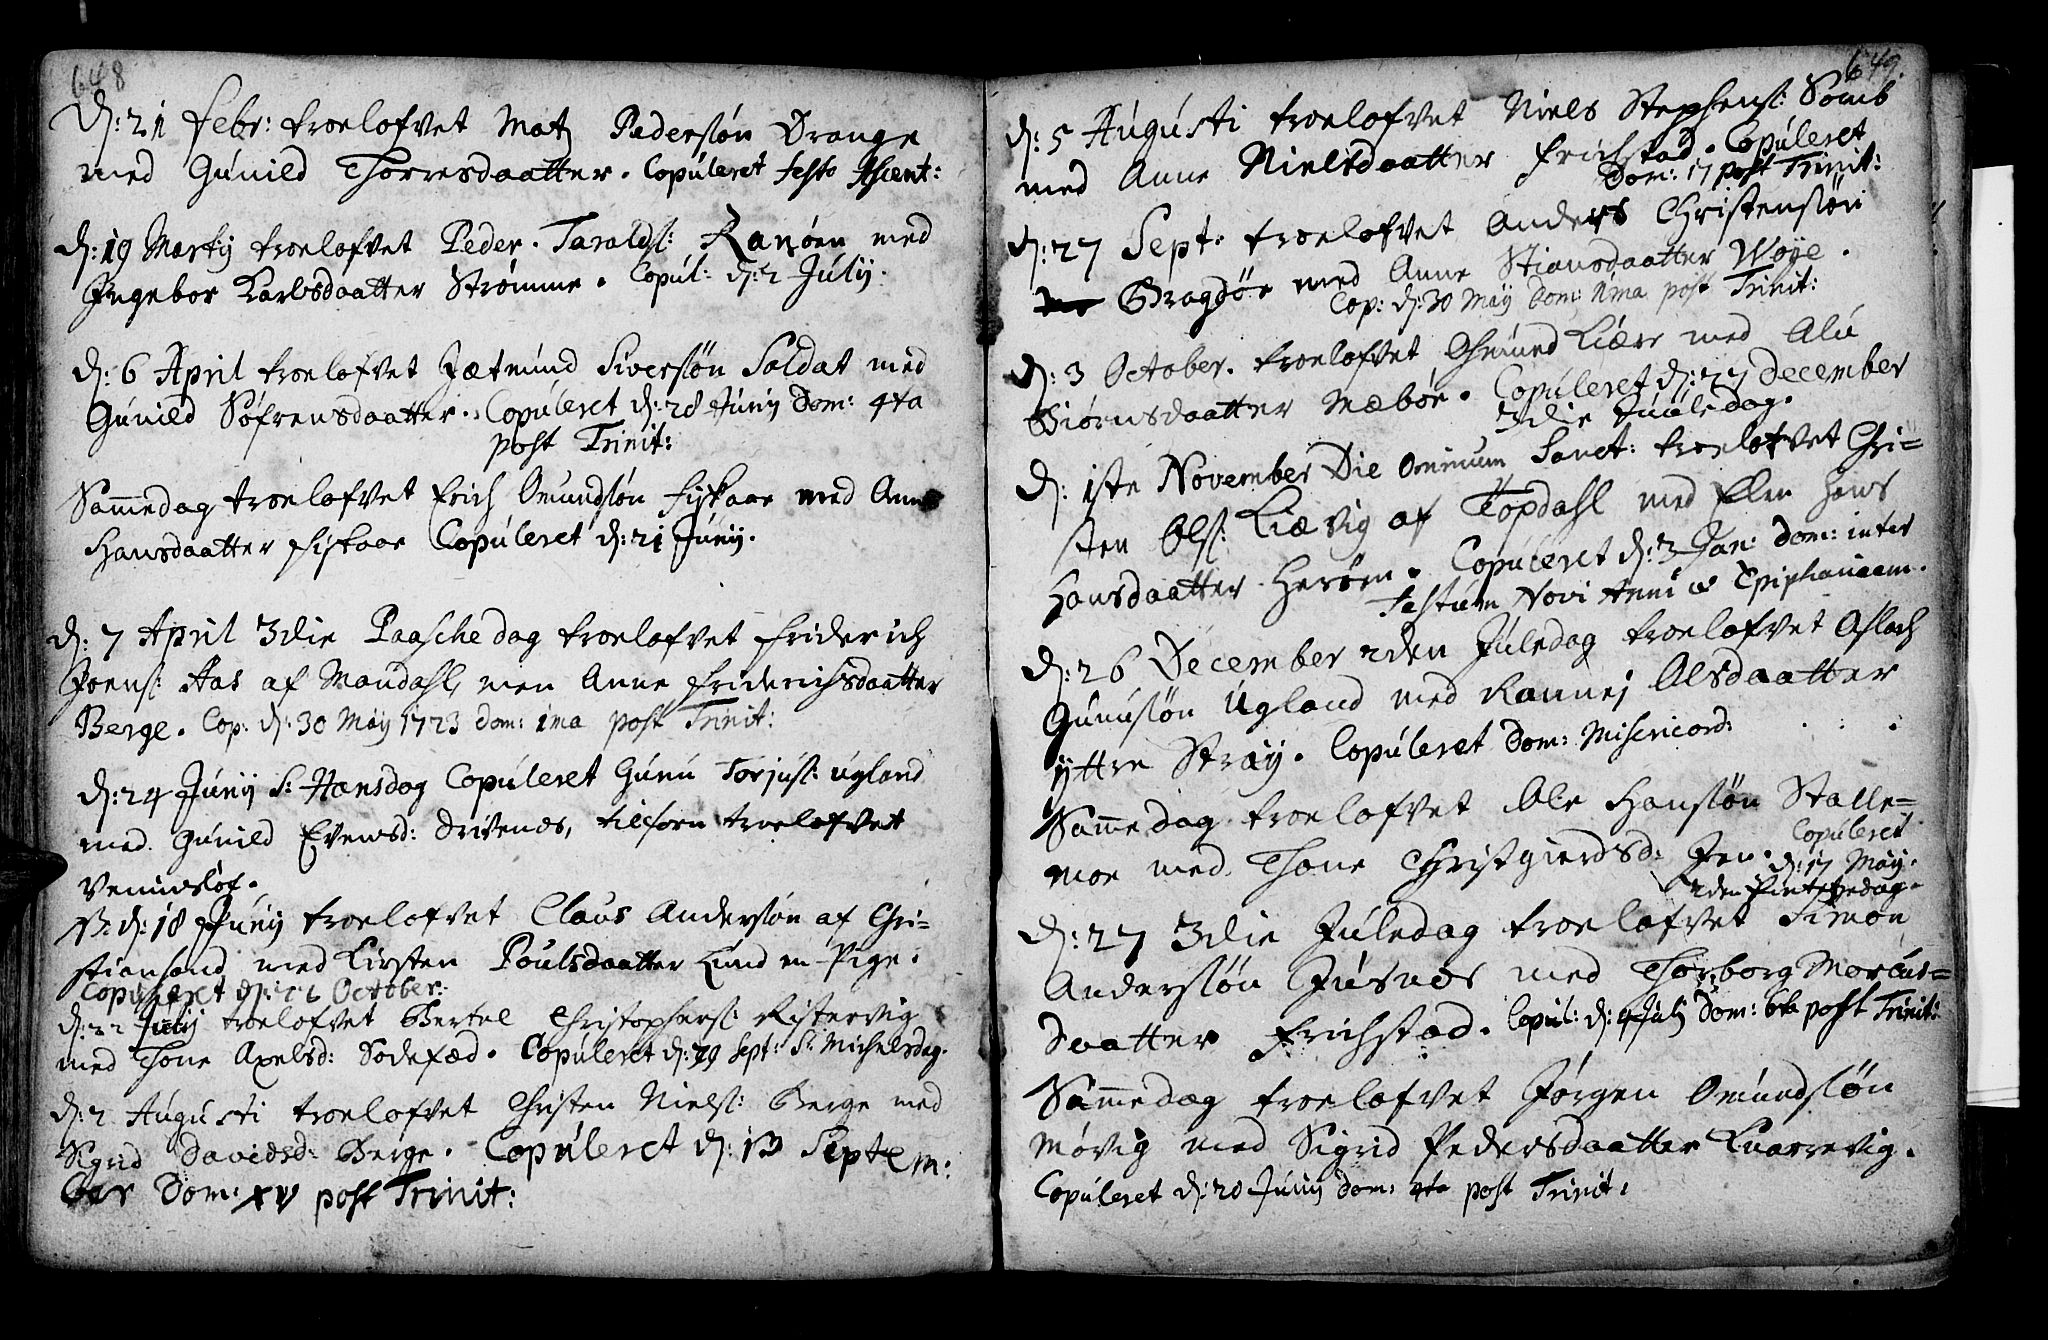 648
d: 21 Febr: troelofvet Mats Pedersøn Drange
med Gunild Thorresdaatter. Copuleret Festo Ascent:
d: 19 Martij troelofvet Peder Taralds: Ranøen med
Ingebor Karlsdaatter Strømme. Copul: d: 2 Julij.
d: 6 April troelofvet Jætmund Siversøn Soldat med
Gunild Søfrensdaatter. Copuleret d: 28 Junij Dom: 4ta
post Trinit:
Sammedag troelofvet Erich Omundsøn Fiskaae med Anne
Hansdaatter Fiskaae Copuleret d: 21 Junij.
d: 7 April 3die Paaschedag troelofvet Friderich
Joens: Aas af Mandahl, men Anne Friderichsdaatter
Berge. Cop: d: 30 Maij 1723 Dom: 1ma post Trinit:
d: 24 Junij S: Hansdag Copuleret Gunu Torjus: Ugland
med Gunild Evensd: Drivenes, tilforn troelofvet
Vennesløf.
NB: d: 18 Junij troelofvet Claus Andersøn af Chri-
stiansand med Kirsten Poulsdaatter Lund en Pige.
Copuleret d: 22 October:
d: 22 Julij troelofvet Bertel Christophers: Ristervig
med Thone Axelsd: Sodefæd. Copuleret d: 29 Sept: S: Michelsdag.
d: 2 Augusti troelofvet Christen Niels: Berge med
Sigrid Davidsd: Berge. Copuleret d: 13 Septem:
ber Dom: XV post Trinit:
649.
d: 5 Augusti troelofvet Niels Stephens: Somb
med Anne Nielsdaatter Frichstad. Copuleret
Dom: 17 post Trinit:
d: 27 Sept: troelofvet Anders Christensøn
Bragdøe med Anne Stiansdaatter Woye.
Cop: d: 30 Maij Dom: 1ma post Trinit:
d: 3 October. troelofvet Osmund Kiærr med Alu
Biørnsdaatter Mæbøe. Copuleret d: 27 December
3die Juuledag.
d: 1ste November Die Omnium Sanct: troelofvet Chri-
sten Ols: Kiævig af Topdahl med Elen Hans
Hansdaatter Herøen. Copuleret d: 3 Jan: Dom: inter
Festum Novi Anni & Epiphaniam.
d: 26 December 2den Juledag troelofvet Aslach
Gunusøn Ugland med Rannej Olsdaatter
ÿttre Straÿ. Copuleret Dom: Misericord:
Sammedag troelofvet Ole Hansøn Stalle-
moe med Thone Christgierdsd: Fen. Copuleret
d: 17 Maij.
2den Pintzedag.
d: 27 3die Juledag troelofvet Simon
Andersøn Jusnes med Thorborg Morcus-
daatter Frichstad. Copul: d: 4 Julj Dom: 6ta post Trinit:
Sammedag troelofvet Jørgen Omundsøn
Møvig med Sigrid Pedersdaatter Kuarrevig.
Copuleret d: 20 Junij Dom: 4ta post Trinit: